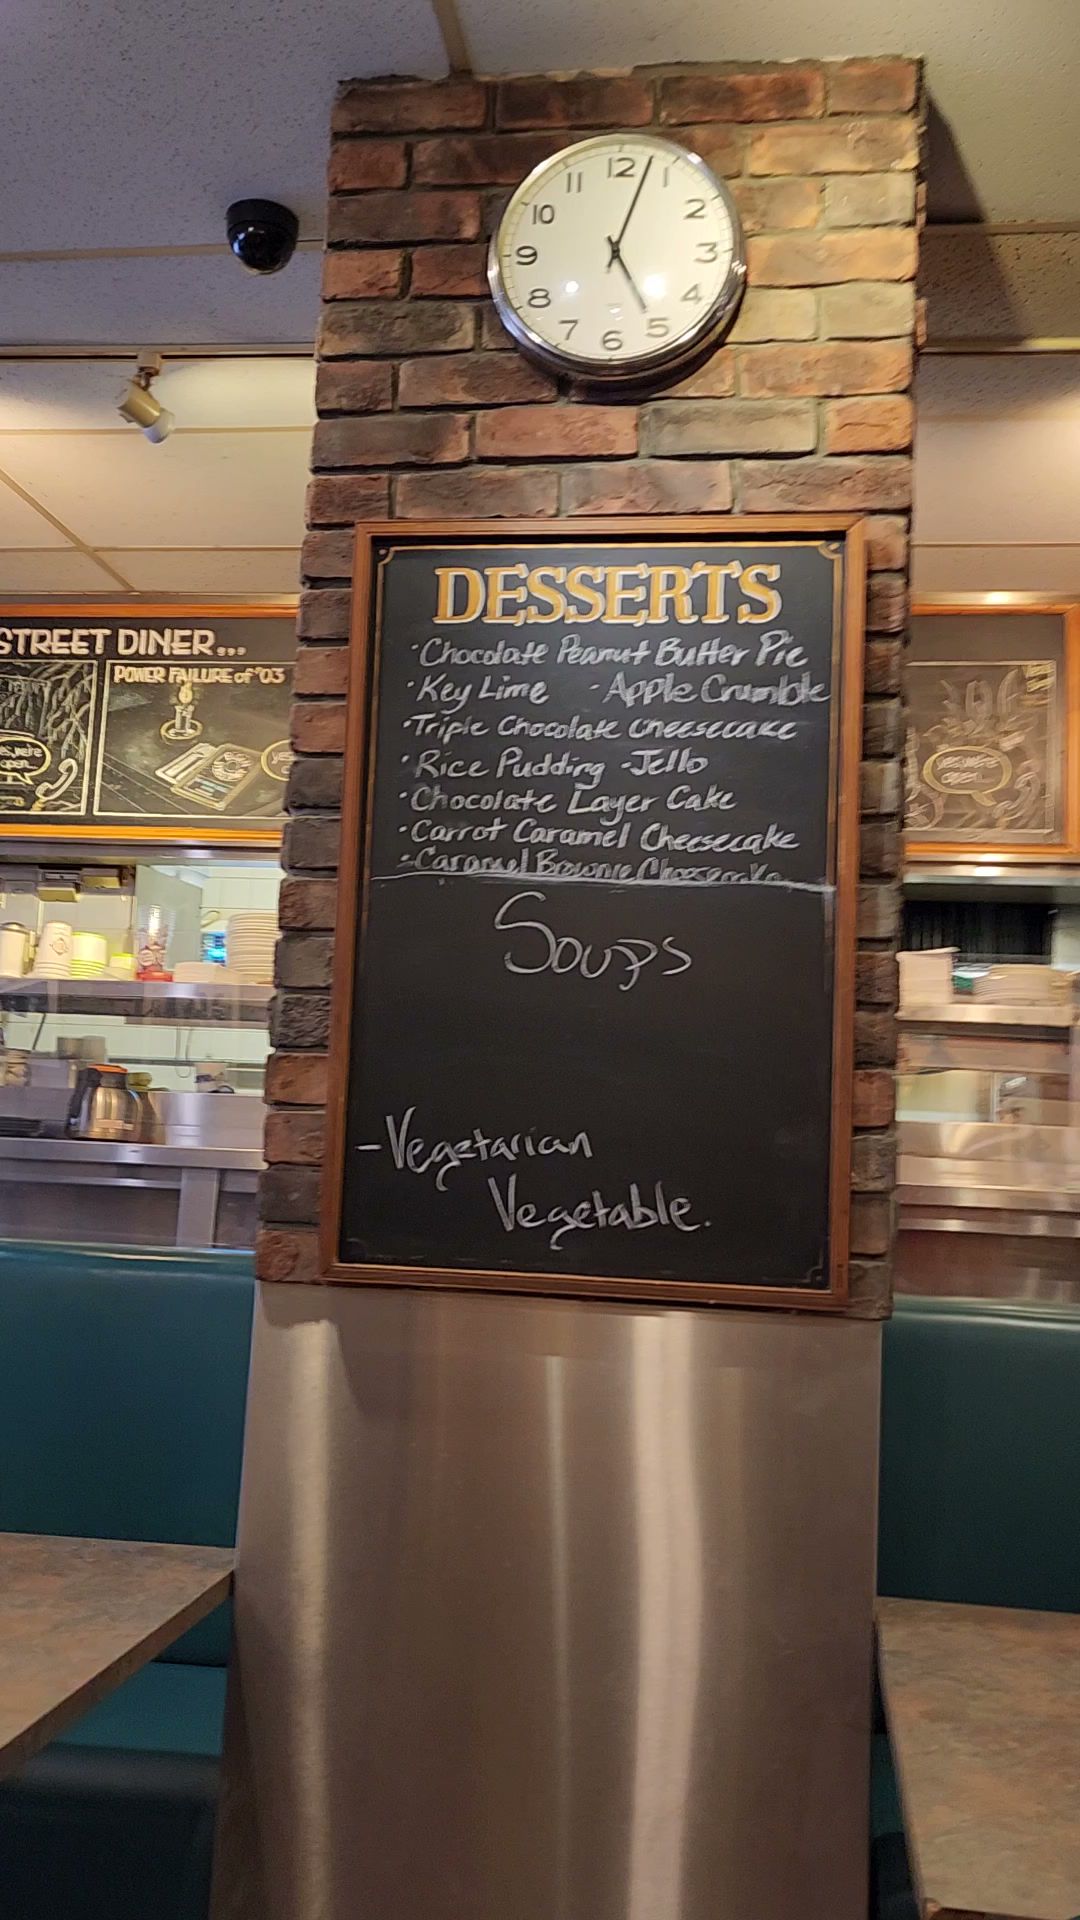 12
11 1
10 2
9 3
8 4
7 5
6
STREET DINER...
POWER FAILURE of '03
yes,we're
open...
yes,we're
open...
DESSERTS
• Chocolate Peanut Butter Pie
• Key Lime - Apple Crumble
• Triple Chocolate Cheesecake
• Rice Pudding - Jello
• Chocolate Layer Cake
• Carrot Caramel Cheesecake
- Caramel Brownie Cheesecake
Soups
- Vegetarian
Vegetable.